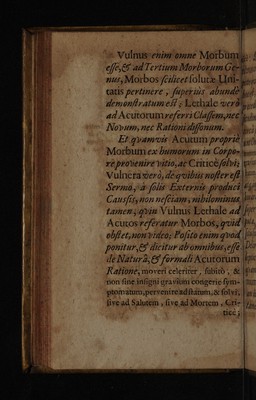 Vulnus enim omne Morbum
esse, & ad Tertium Morborum Ge-
nus, Morbos scilicet solutæ Uni-
tatis pertinere, superius abundè
demonstratum est; Lethale verò
ad Acutorum referri Classem, nec
Novum, nec Rationi dissonum.
Et qvamvis Acutum propriè
Morbum ex humorum in Corpo-
re provenire vitio, ac Criticè solvi;
Vulnera verò, de qvibus noster est
Sermo, à solis Externis produci
Causis, non nesciam, nihilominus
tamen, qvin Vulnus Lethale ad
Acutos referatur Morbos, qvid
obstet, non video; Posito enim qvod
ponitur, & dicitur ab omnibus, esse
de Naturâ, & formali Acutorum
Ratione, moveri celeriter, subitò, &
non sine insigni gravium congerie sym-
ptomatum, pervenire ad statum, & solvi,
sive ad Salutem, sive ad Mortem, Cri-
ticè;